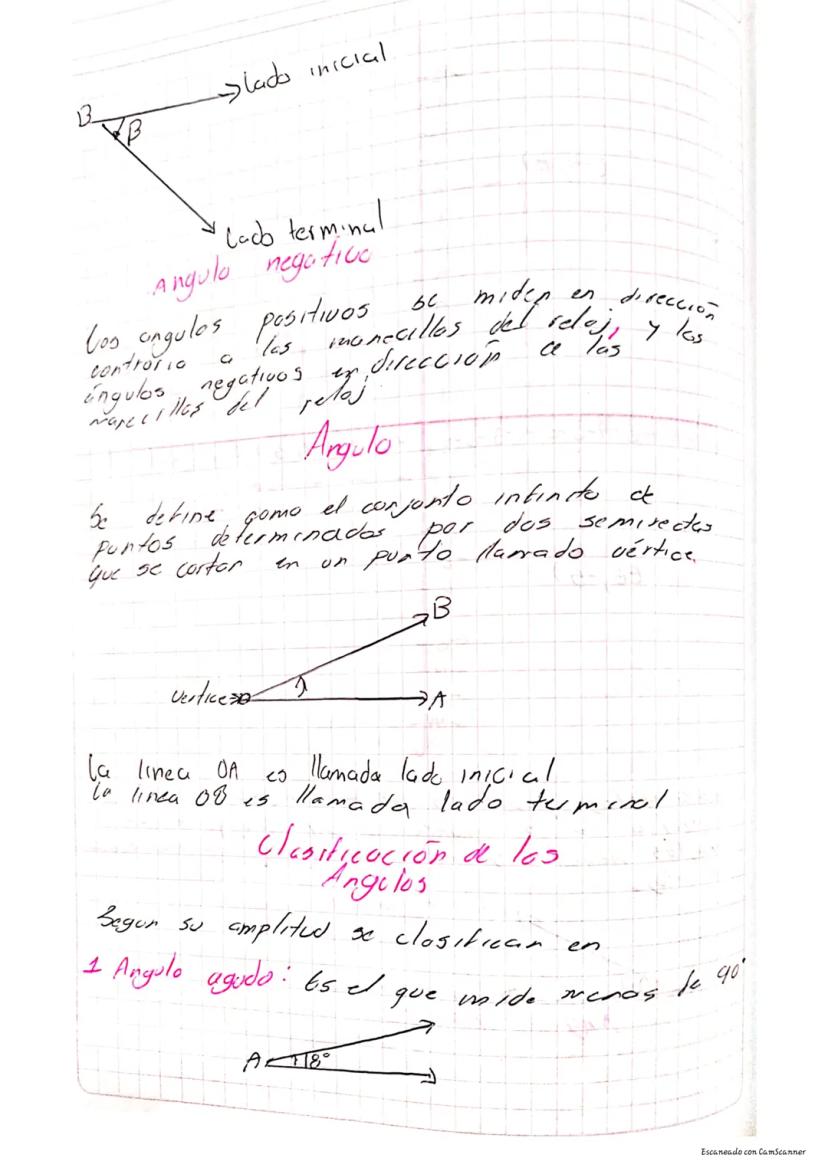 lado inicial
B
β
lado terminal
Angulo negativo
Los angulos positivos se miden en dirección
contraria a las manecillas del reloj, y los
ángulos negativos en dirección a las
manecillas del reloj
Angulo
Se define como el conjunto infinito de
puntos determinados por dos semirectas
que se cortan en un punto llamado vértice.
B
Vertice
A
La linea OA es llamada lado inicial
La linea OB es llamada lado terminal
Clasificación de los
Angulos
Segun su amplitud se clasifican en
1 Angulo agudo: Es el que mide menos de 90°
A 18°
Escaneado con CamScanner